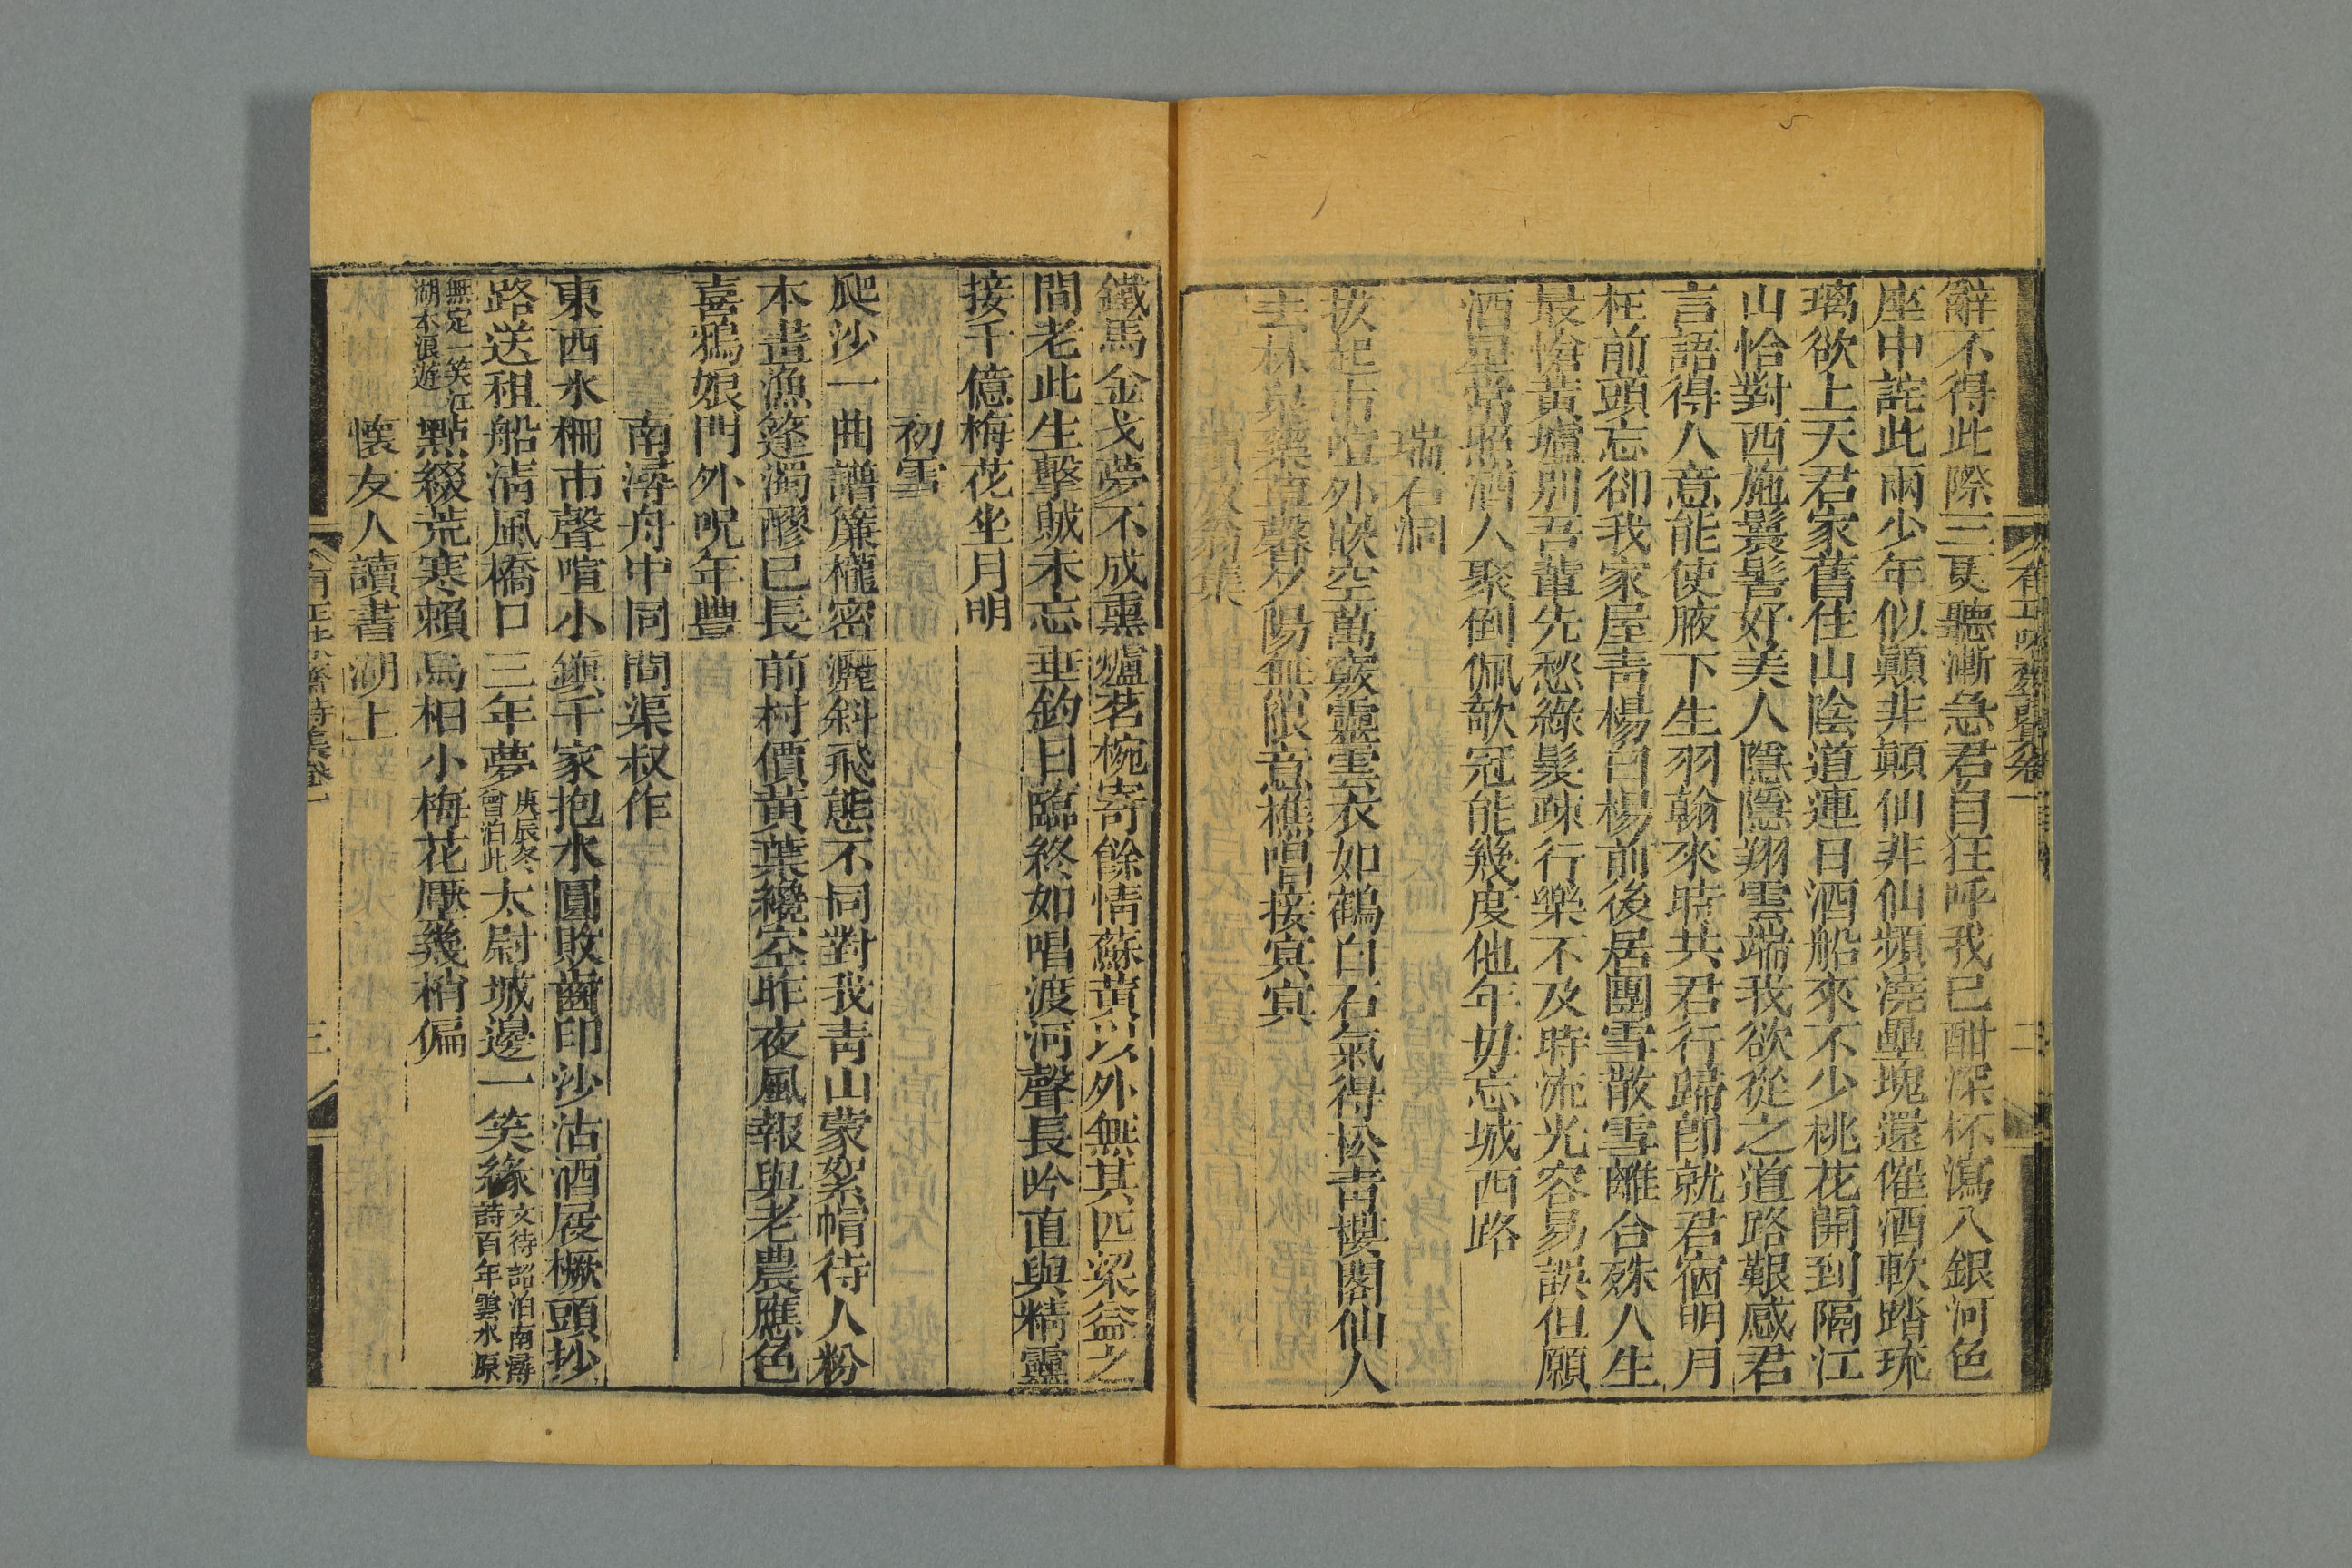 辭不得此際三更聽漸急君自狂呼我已酣深杯瀉入銀河色
座中詫此兩少年似顛非顛仙非仙頻澆壘塊還催酒軟踏琉
璃欲上天君家舊住山陰道連日酒船來不少桃花開到隔江
山恰對西施鬟髻好美人隱隱翔雲端我欲從之道路艱感君
言語得人意能使腋下生羽翰來時共君行歸卽就君宿明月
在前頭忘卻我家屋靑楊白楊前後居團雪散雪離合殊人生
最愴黃壚別吾輩先愁綠髮疎行樂不及時流光容易誤但願
酒星常照酒人聚倒佩欹冠能幾度他年毋忘城西路
瑞石洞
拔起市喧外嵌空萬竅靈雲衣如鶴白石氣得松靑樓閣仙人
去林泉藥草馨夕陽無限意樵唱接冥冥
放翁集
鐵馬金戈夢不成熏爐茗椀寄餘情蘇黃以外無其匹梁益之
間老此生擊賊未忘垂釣日臨終如唱渡河聲長吟直與精靈
接千億梅花坐月明
初雪
爬沙一曲譜簾櫳密灑斜飛態不同對我靑山蒙絮帽待人粉
本畫漁篷濁醪已長前村價黃葉纔空昨夜風報與老農應色
喜鴉娘門外呪年豐
南潯舟中同問渠叔作
東西水柵市聲喧小鎭千家抱水圓敗齒印沙沽酒屐橛頭抄
路送租船淸風橋口三年夢庚辰冬曾泊此太尉城邊一笑緣文待詔泊南潯詩百年雲水原
無定一笑江湖本浪遊點綴荒寒賴烏桕小梅花壓幾梢偏
懷友人讀書湖上
三